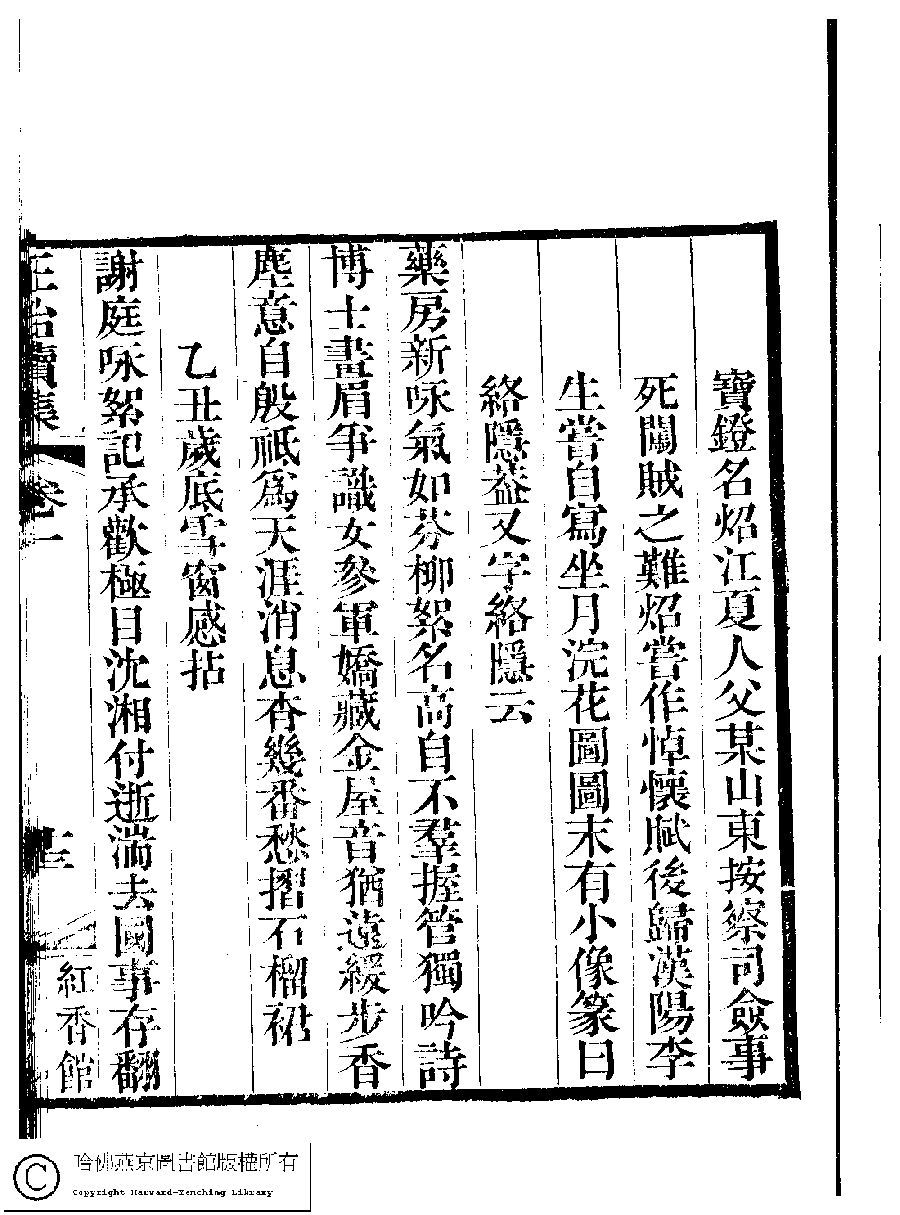 寶鐙名炤江夏人父某山東按察司僉事
死闖賊之難炤嘗作悼懷賦後歸漢陽李
生嘗自寫坐月浣花圖圖末有小像篆曰
絡隱葢又字絡隱云
藥房新咏氣如芬柳絮名高自不羣握管獨吟詩
博士畫眉爭識女參軍嬌藏金屋音猶遠緩步香
塵意自殷祇爲天涯消息杳幾番愁摺石榴裙
乙丑歲底雪窗感拈
謝庭咏絮記承歡極目沈湘付逝湍去國事存翻
正始續集
卷一
紅香館
哈佛燕京圖書館版權所有
Copyright Harvard-Yenching Library